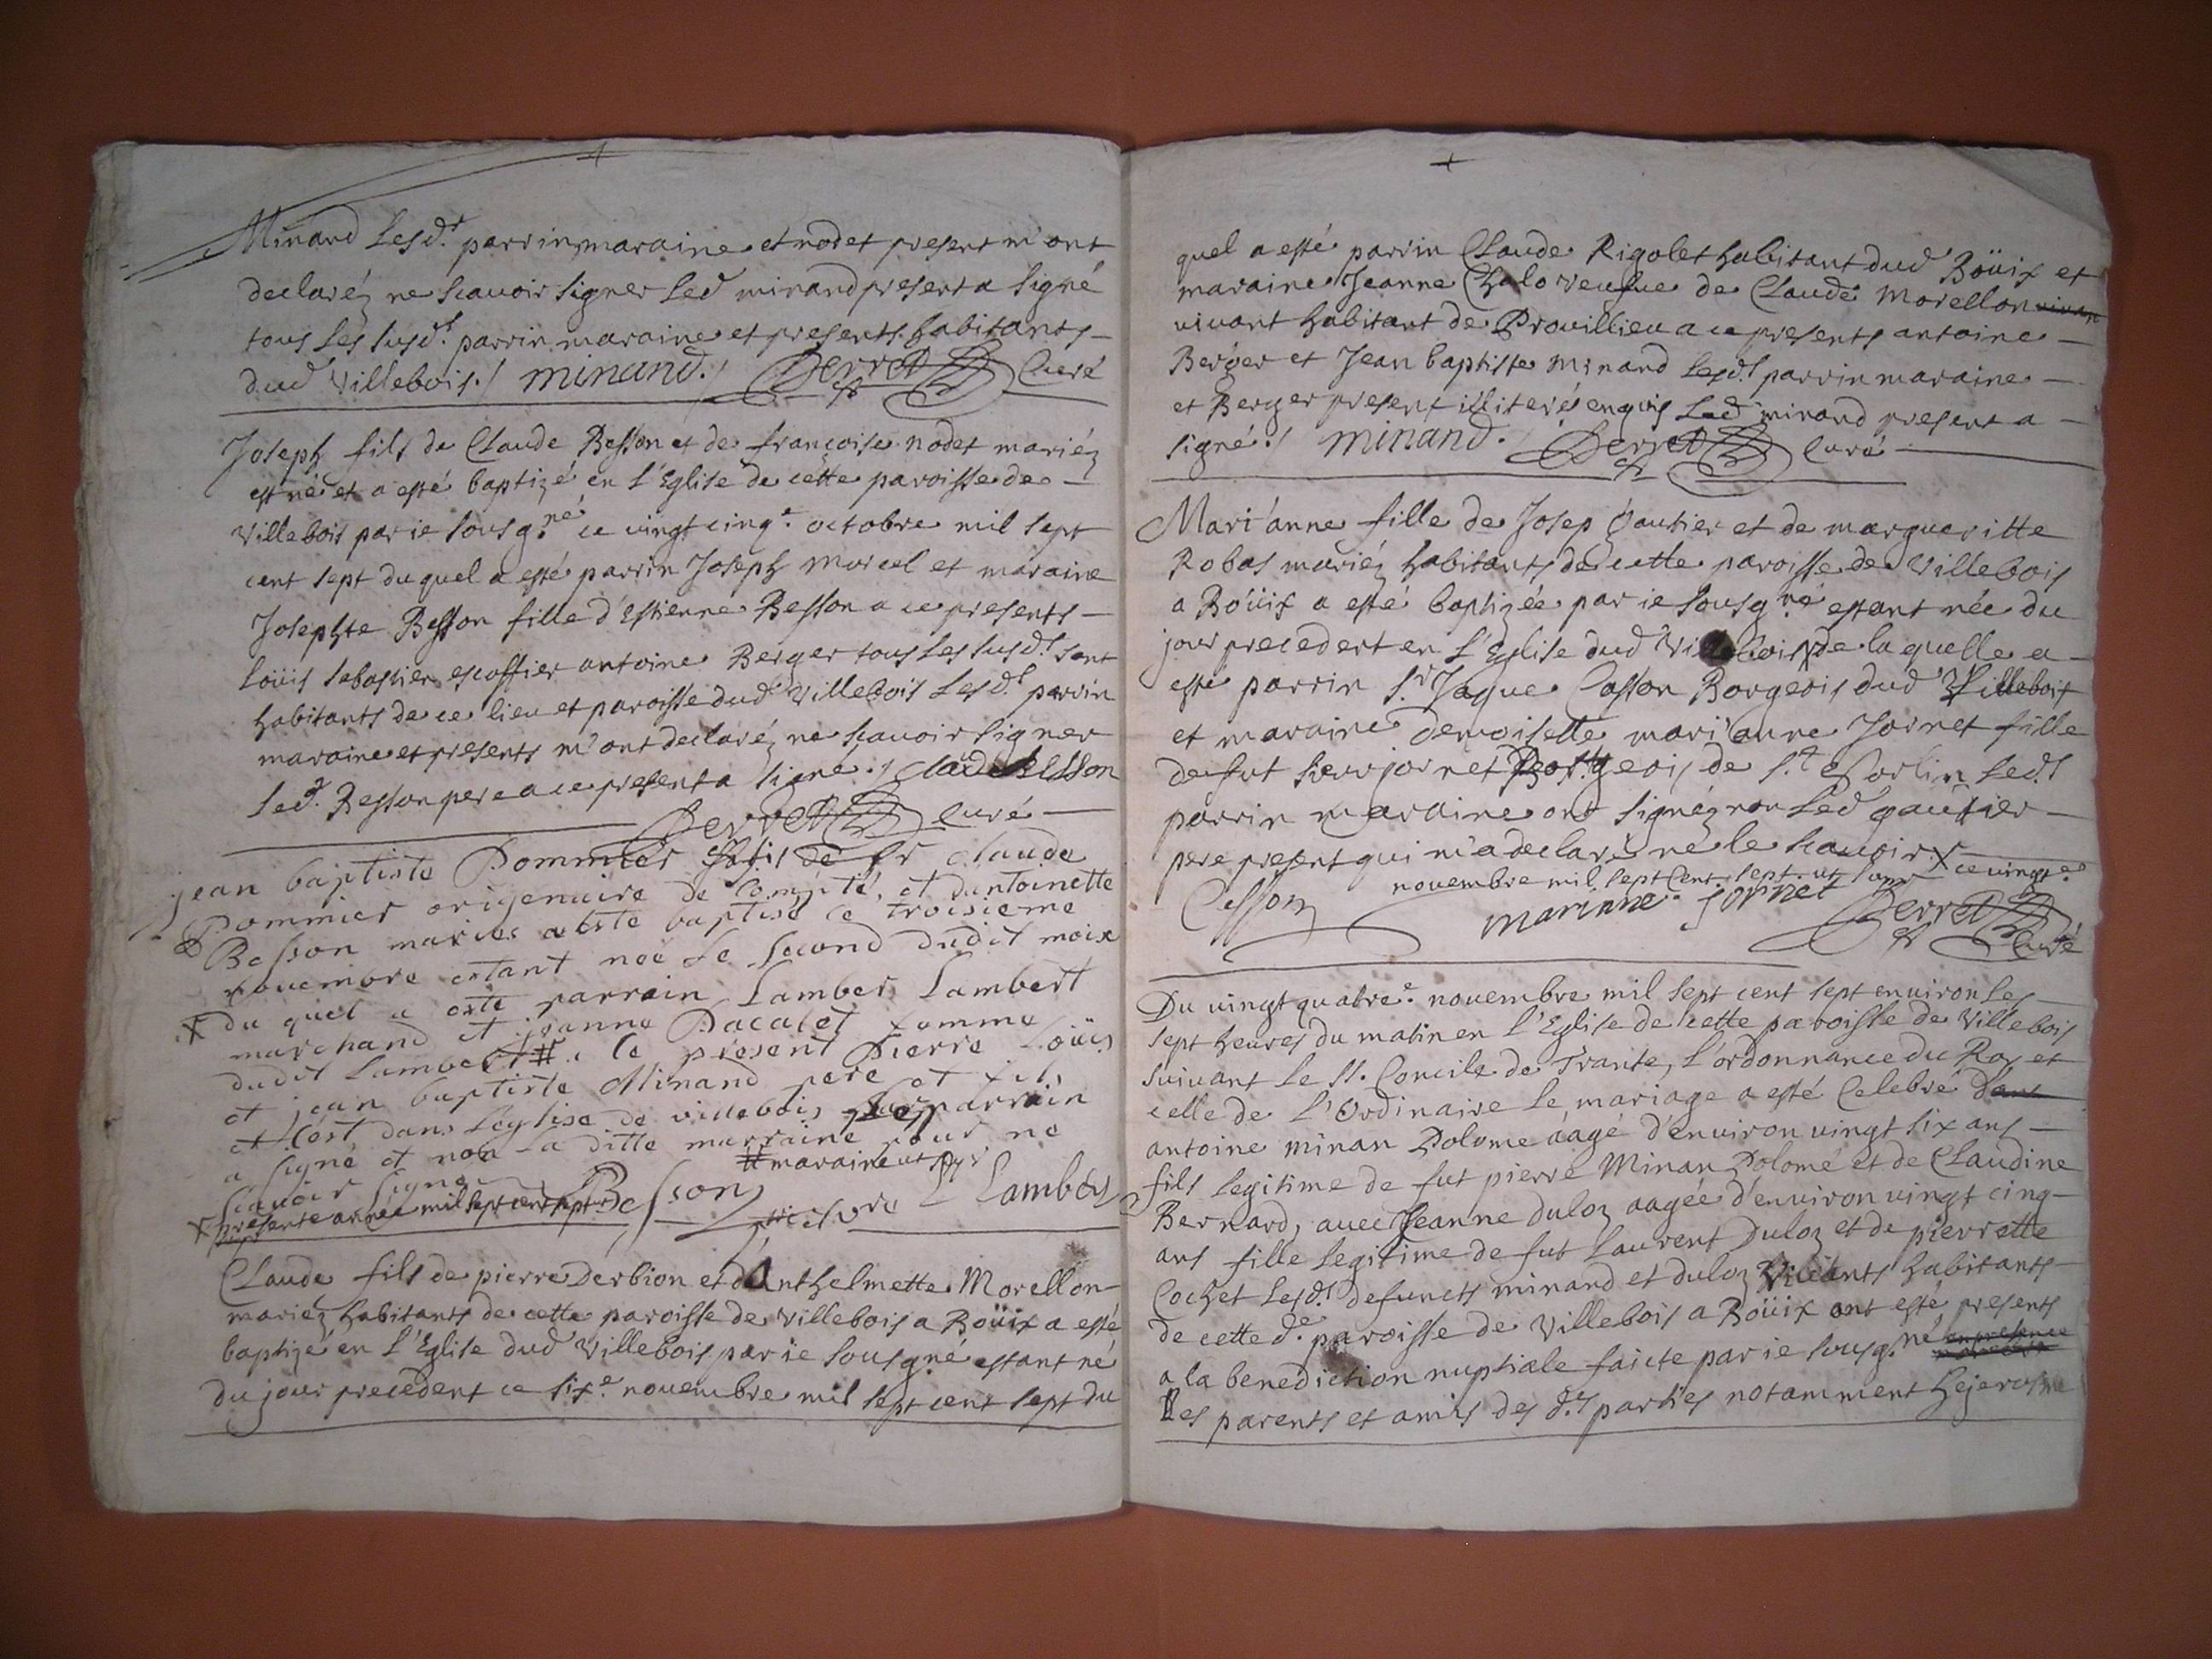 Minand Lesd.t parrin maraine et nodet present m'ont
declaréz ne scauoir signer Led minand present a signé
tous les susd.t parrin maraine et presents habitants
dud Villebois./ minand./ Perret Curé
Joseph fils de Claude Besson et de françoise nodet mariéz
est né et a esté baptizé en l'Eglise de cette paroisse de
Villebois par ie sousg.né ce uingt cinq.e octobre mil sept
cent sept duquel a esté parrin Joseph Morcel et maraine
Josephte Besson fille d'Estienne Besson a ce presents
Loüis sebastien escoffier antoine Berger tous les susd.t sont
habitants de ce lieu et paroisse dud Villebois Lesd.t parrin
maraine et presents m'ont declaréz ne scauoir signer
Led.t Besson pere a ce present a signé./ Claude BESSON
Perret Curé
jean baptiste Pommier fils de Sr claude
Pommier origenaire de Compté, et dantoinette
Besson mariés a este baptisé ce troisieme
nouembre estant née le second dudit moix
X du quel a este parrain Lamber Lambert
marchand et jeanne Pacalet famme
dudit Lambert # a ce present Pierre Loüis
et jean baptiste Minand pere et fils
et cest dans leglise de villebois parrain
a signé et non la ditte marraine pour ne
scauoir signer # maraine
X presente année mil sept cent sept Besson vicaire L Lambers
Claude fils de pierre Derbion et d'Anthelmette Morellon
mariéz habitants de cette paroisse de Villebois a Boüix a esté
baptizé en l'Eglise dud Villebois par ie sousgné estant né
du jour precedent ce six.e nouembre mil sept cent sept du
quel a esté parrin Claude Rigolet habitant dud Boüix et
maraine Jeanne Chalo veufue de Claude Morellon
uiuant habitant de Prouillieu a ce presents antoine
Berger et Jean baptiste Minand Lesd.t parrin maraine
et Berger present illiterés enquis Led minand present a
signé./ minand./ Perret Curé
Mari'anne fille de Josep Gautier et de margueritte
Robas mariéz habitants de cette paroisse de Villebois
a Boüix a esté baptizée par ie sousg.né estant née du
jour precedent en l'Eglise dud Villebois X de laquelle a
esté parrin S.r Jaque Casson Borgeois dud Villebois
et maraine demoiselle mari'anne Jornet fille
de fut sieur jornet Borgeois de S.t Sorlin Led.t
parrin maraine ont signéz non Led gautier
pere present qui m'a declaré ne le scauoir X ce uingt.e
nouembre mil sept cent sept ut supr
Casson marianne jornet Perret Curé
Du uingt quatre.e nouembre mil sept cent sept enuiron les
sept heures du matin en l'Eglise de cette paroisse de Villebois
suiuant le St. Concile de Trante, l'ordonnance du Roy et
celle de l'Ordinaire le mariage a esté Celebré
antoine minan Polome aagé d'enuiron uingt six ans
fils legitime de fut pierre Minan Polomé et de Claudine
Bernard, auec Jeanne duloz aagée d'enuiron uingt cinq
ans fille legitime de fut Laurent Duloz et de pierrette
Cochet Lesd.t defuncts minand et duloz Viuants habitants
de cette d.e paroisse de Villebois a Boüix ont esté presents
a la benediction nuptiale faicte par ie sousg.né
Les parents et amis des d.ts parties notamment hejerosme